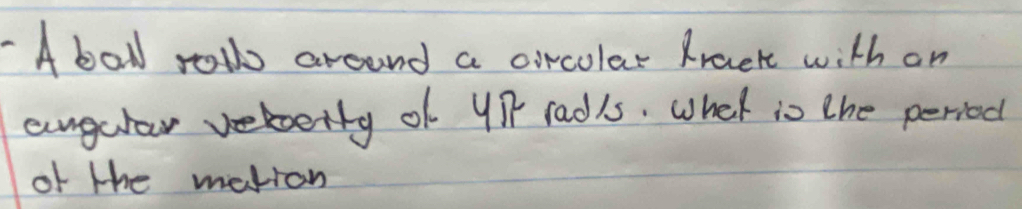 - A ball rolls around a circular track with an
angular velocity of 4π rad/s. What is the period
of the motion